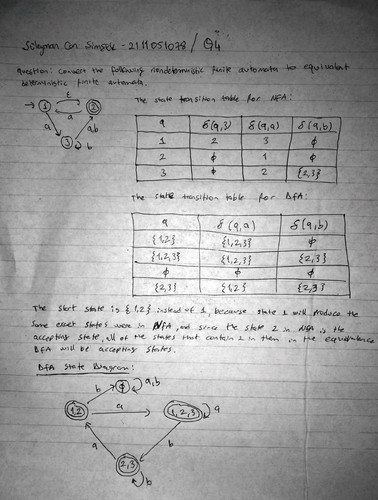 Süleyman Can Şimşek - 2111051078 / Q4
Question: Convert the following nondeterministic finite automata to equivalent
deterministic finite automata.
ε
1 2
a
a a,b
3 b
The state transition table for NFA:
q δ(q,ε) δ(q,a) δ(q,b)
1 2 3 ϕ
2 ϕ 1 ϕ
3 ϕ 2 {2,3}
The state transition table for DFA:
q δ(q,a) δ(q,b)
{1,2} {1,2,3} ϕ
{1,2,3} {1,2,3} {2,3}
ϕ ϕ ϕ
{2,3} {1,2} {2,3}
The start state is {1,2} instead of 1, because state 1 will produce the
same exact states were in NFA, and since the state 2 in NFA is the
accepting state, all of the states that contain 2 in them in the equivalence
DFA will be accepting states.
DFA State Diagram:
ϕ a,b
b
1,2 a 1,2,3 a
a b
2,3
b